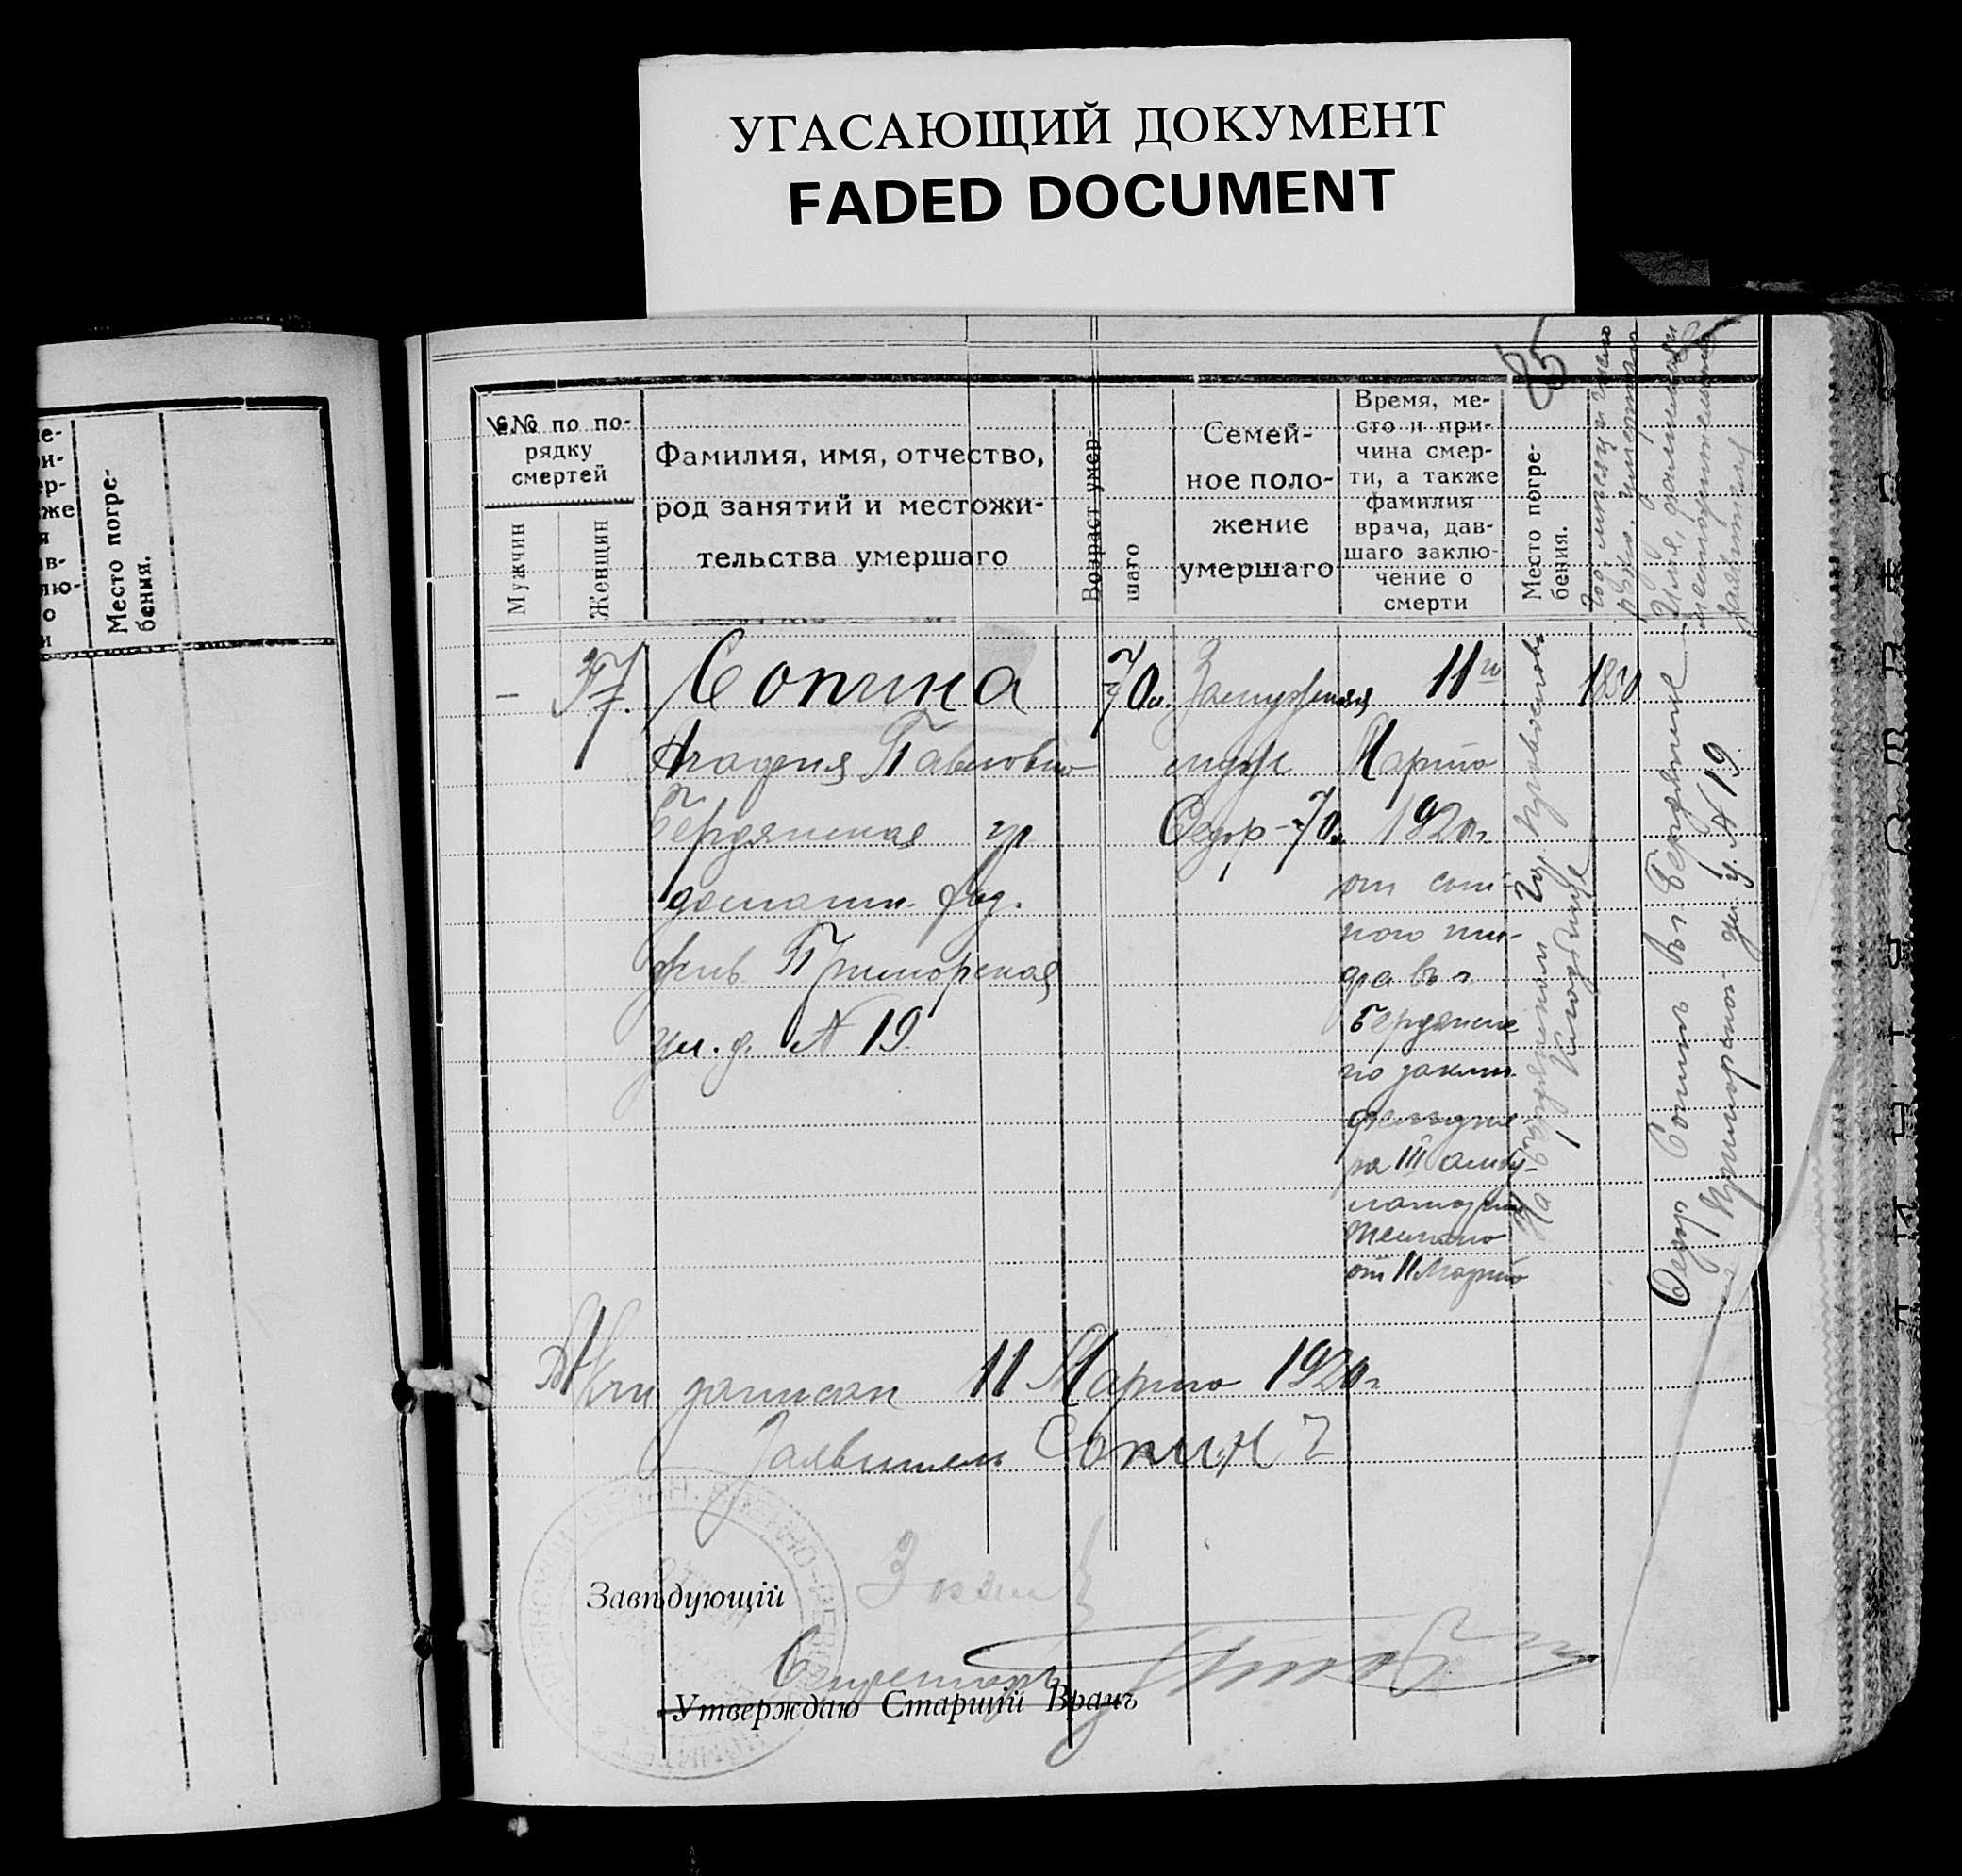 УГАСАЮЩИЙ ДОКУМЕНТ
FADED DOCUMENT
85
Место погре-
бения.
№№ по по-
рядку
смертей
Мужчин
Женщин
Фамилия, имя, отчество,
род занятий и местожи-
тельства умершаго
Возраст умер-
шаго
Семей-
ное поло-
жение
умершаго
Время, ме-
сто и при-
чина смер-
ти, а также
фамилия
врача, дав-
шаго заклю-
чение о
смерти
Место погре-
бения.
Год, месяц и число
рожд. умершаго
Имя, фамилия и
местожительство
заявителя
–
37.
Сопина
Агафия Павловна
Бердянская
домашн.
жив. Приморская
ул. д. № 19
70л.
Замужняя
муж
Федор – 70л.
11го
Марта
1920г.
от сып-
ного ти-
фа в г.
Бердянске
по заключ.
фельдше-
ра III амбу-
латории
от 11 Марта
На Бердянском гор. Православном
Кладбище
1850
Федор Сопин в г. Бердянске
Приморская ул. № 19
Акт записан 11 Марта 1920г.
Заявитель Сопин
Завѣдующій
Секретарь
Утверждаю Старшій Врачъ